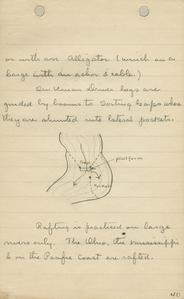 or with an Alligator (which is a
barge with an achor & cable.)
logs are
guided by booms to Sorting Gaps where
they are shunted into lateral pockets.
platform
Rafting is practised on large
rivers only. The Ohio, the Mississippi
& on the Pacific Coast are rafted.